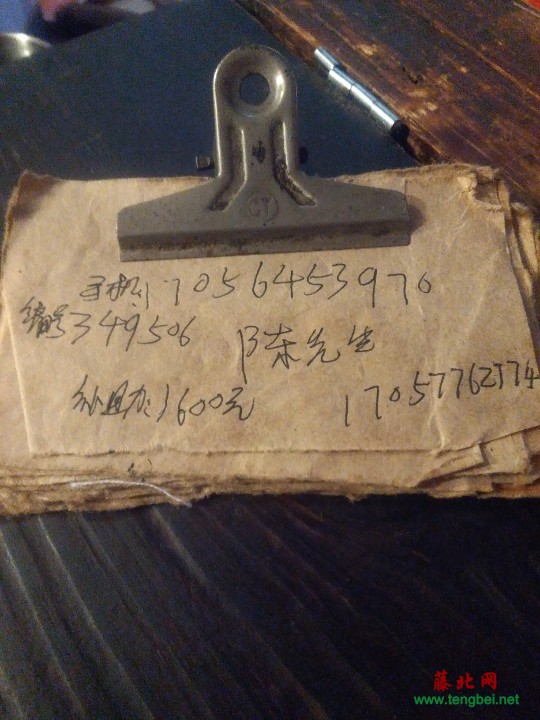 手机:17056453970
编号349506 陈先生
补助:3600元 17057762774
藤北网
www.tengbei.net